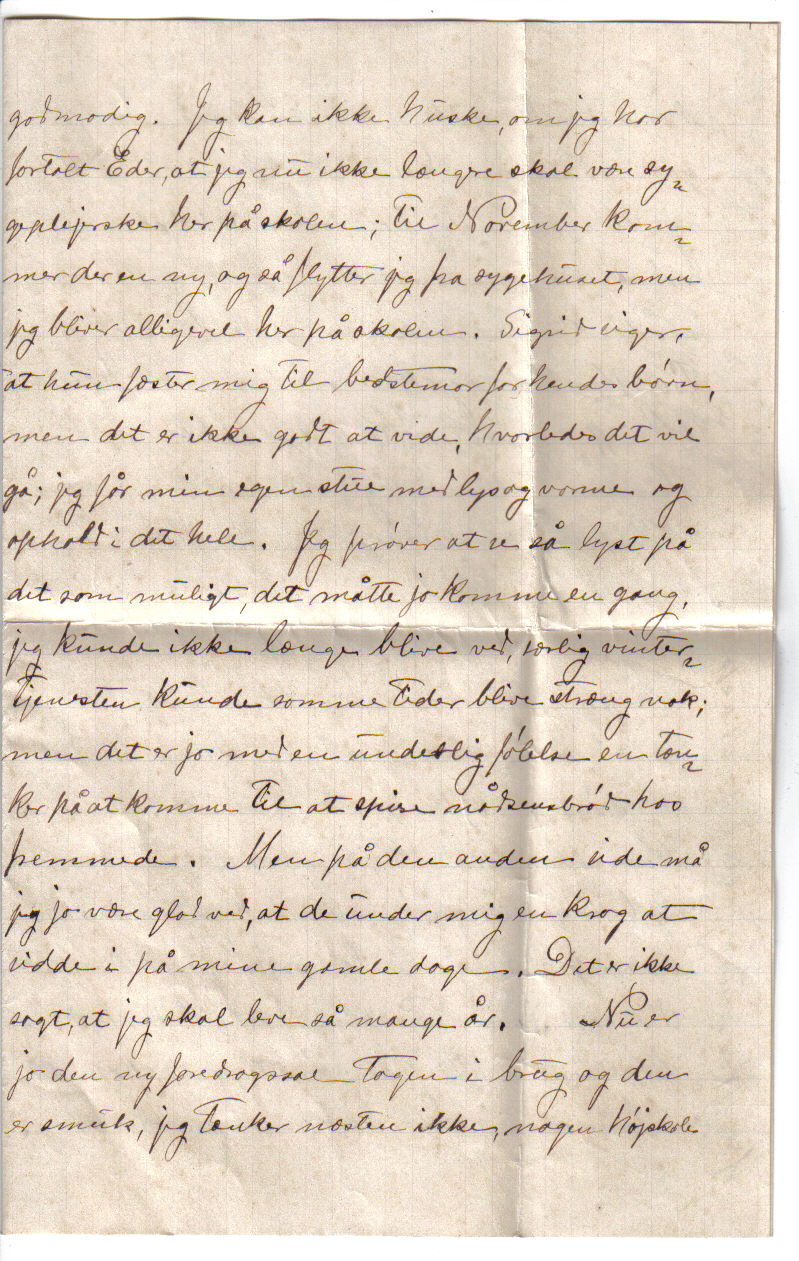 godmodig. Jeg kan ikke huske, om jeg har
fortalt Eder, at jeg nu ikke længere skal være sy-
geplejerske her på skolen; til November kom-
mer der en ny, og så flytter jeg fra sygehuset, men
jeg bliver alligevel her på skolen. Sigrid siger,
at hun fæster mig til bedstemor for hendes børn,
men det er ikke godt at vide, hvorledes det vil
gå; jeg får min egen stue med lys og varme og
ophold i det hele. Jeg prøver at se så lyst på
det som muligt, det måtte jo komme en gang,
jeg kunde ikke længe blive ved, særlig vinter-
tjenesten kunde somme tider blive stræng nok;
men det er jo med en underlig følelse en tæn-
ker på at komme til at spise nådsensbrød hos
fremmede. Men på den anden side må
jeg jo være glad ved, at de under mig en krog at
sidde i på mine gamle dage. Det er ikke
sagt, at jeg skal leve så mange år. Nu er
jo den ny foredragssal tagen i brug og den
er smuk, jeg tænker næsten ikke, nogen højskole